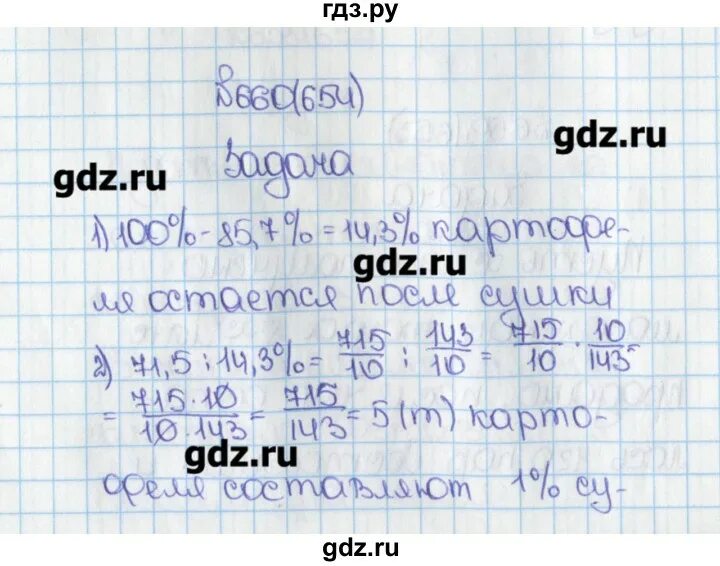 гдз.ру
№660(654)
gdz.ru
Задача
gdz.ru
1) 100% - 85,7% = 14,3% картофе-
gdz.ru
ля остается после сушки
2) 71,5 : 14,3% = 715/10 : 143/10 = 715/10 · 10/143 =
= 715·10/10·143 = 715/143 = 5 (т) карто-
gdz.ru
феля составляют 1% су-
gdz.ru